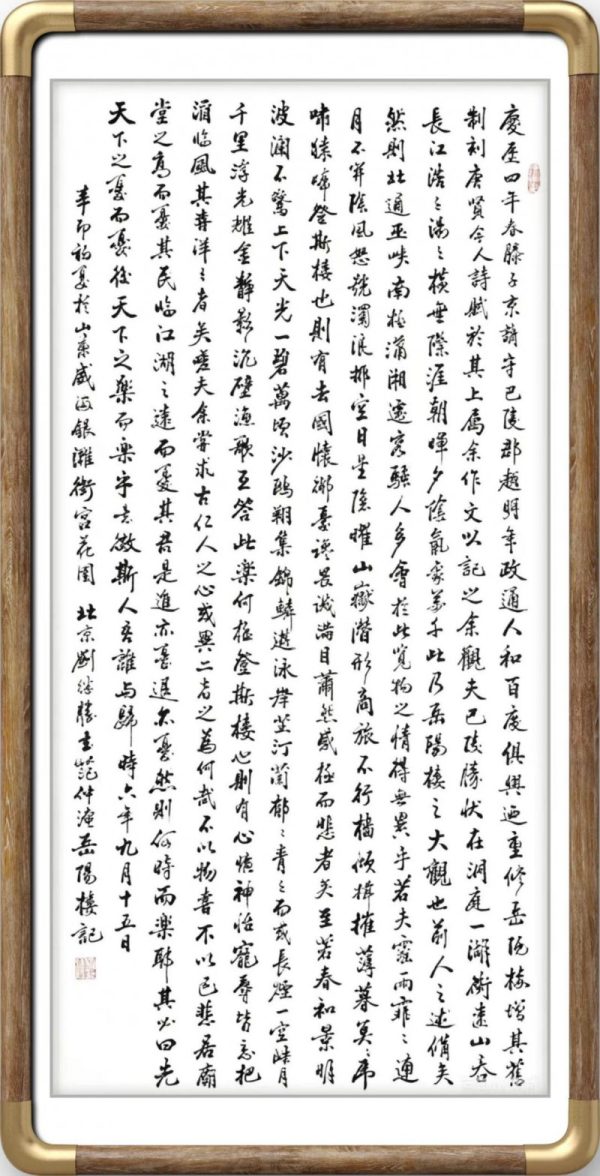 慶歷四年春滕子京謫守巴陵郡越明年政通人和百廢俱興迺重修岳陽樓增其舊
制刻唐賢今人詩賦於其上屬余作文以記之余觀夫巴陵勝狀在洞庭一湖銜遠山吞
長江浩々湯々橫無際涯朝暉夕陰氣象萬千此乃岳陽樓之大觀也前人之述備矣
然則北通巫峽南極瀟湘遷客騷人多會於此覽物之情得無異乎若夫霪雨霏々連
月不開陰風怒號濁浪排空日星隱曜山嶽潛形商旅不行檣傾楫摧薄暮冥々虎
嘯猿啼登斯樓也則有去國懷鄉憂讒畏譏滿目蕭然感極而悲者矣至若春和景明
波瀾不驚上下天光一碧萬頃沙鷗翔集錦鱗游泳岸芷汀蘭郁々青々而或長煙一空皓月
千里浮光耀金靜影沉璧漁歌互答此樂何極登斯樓也則有心曠神怡寵辱皆忘把
酒臨風其喜洋々者矣嗟夫余嘗求古仁人之心或異二者之為何哉不以物喜不以己悲居廟
堂之高而憂其民臨江湖之遠而憂其君是進亦憂退亦憂然則何時而樂耶其必曰先
天下之憂而憂後天下之樂而樂乎噫微斯人吾誰與歸 時六年九月十五日
辛卯初夏於山東威海銀灘宮花園 北京劉勝書范仲淹岳陽樓記